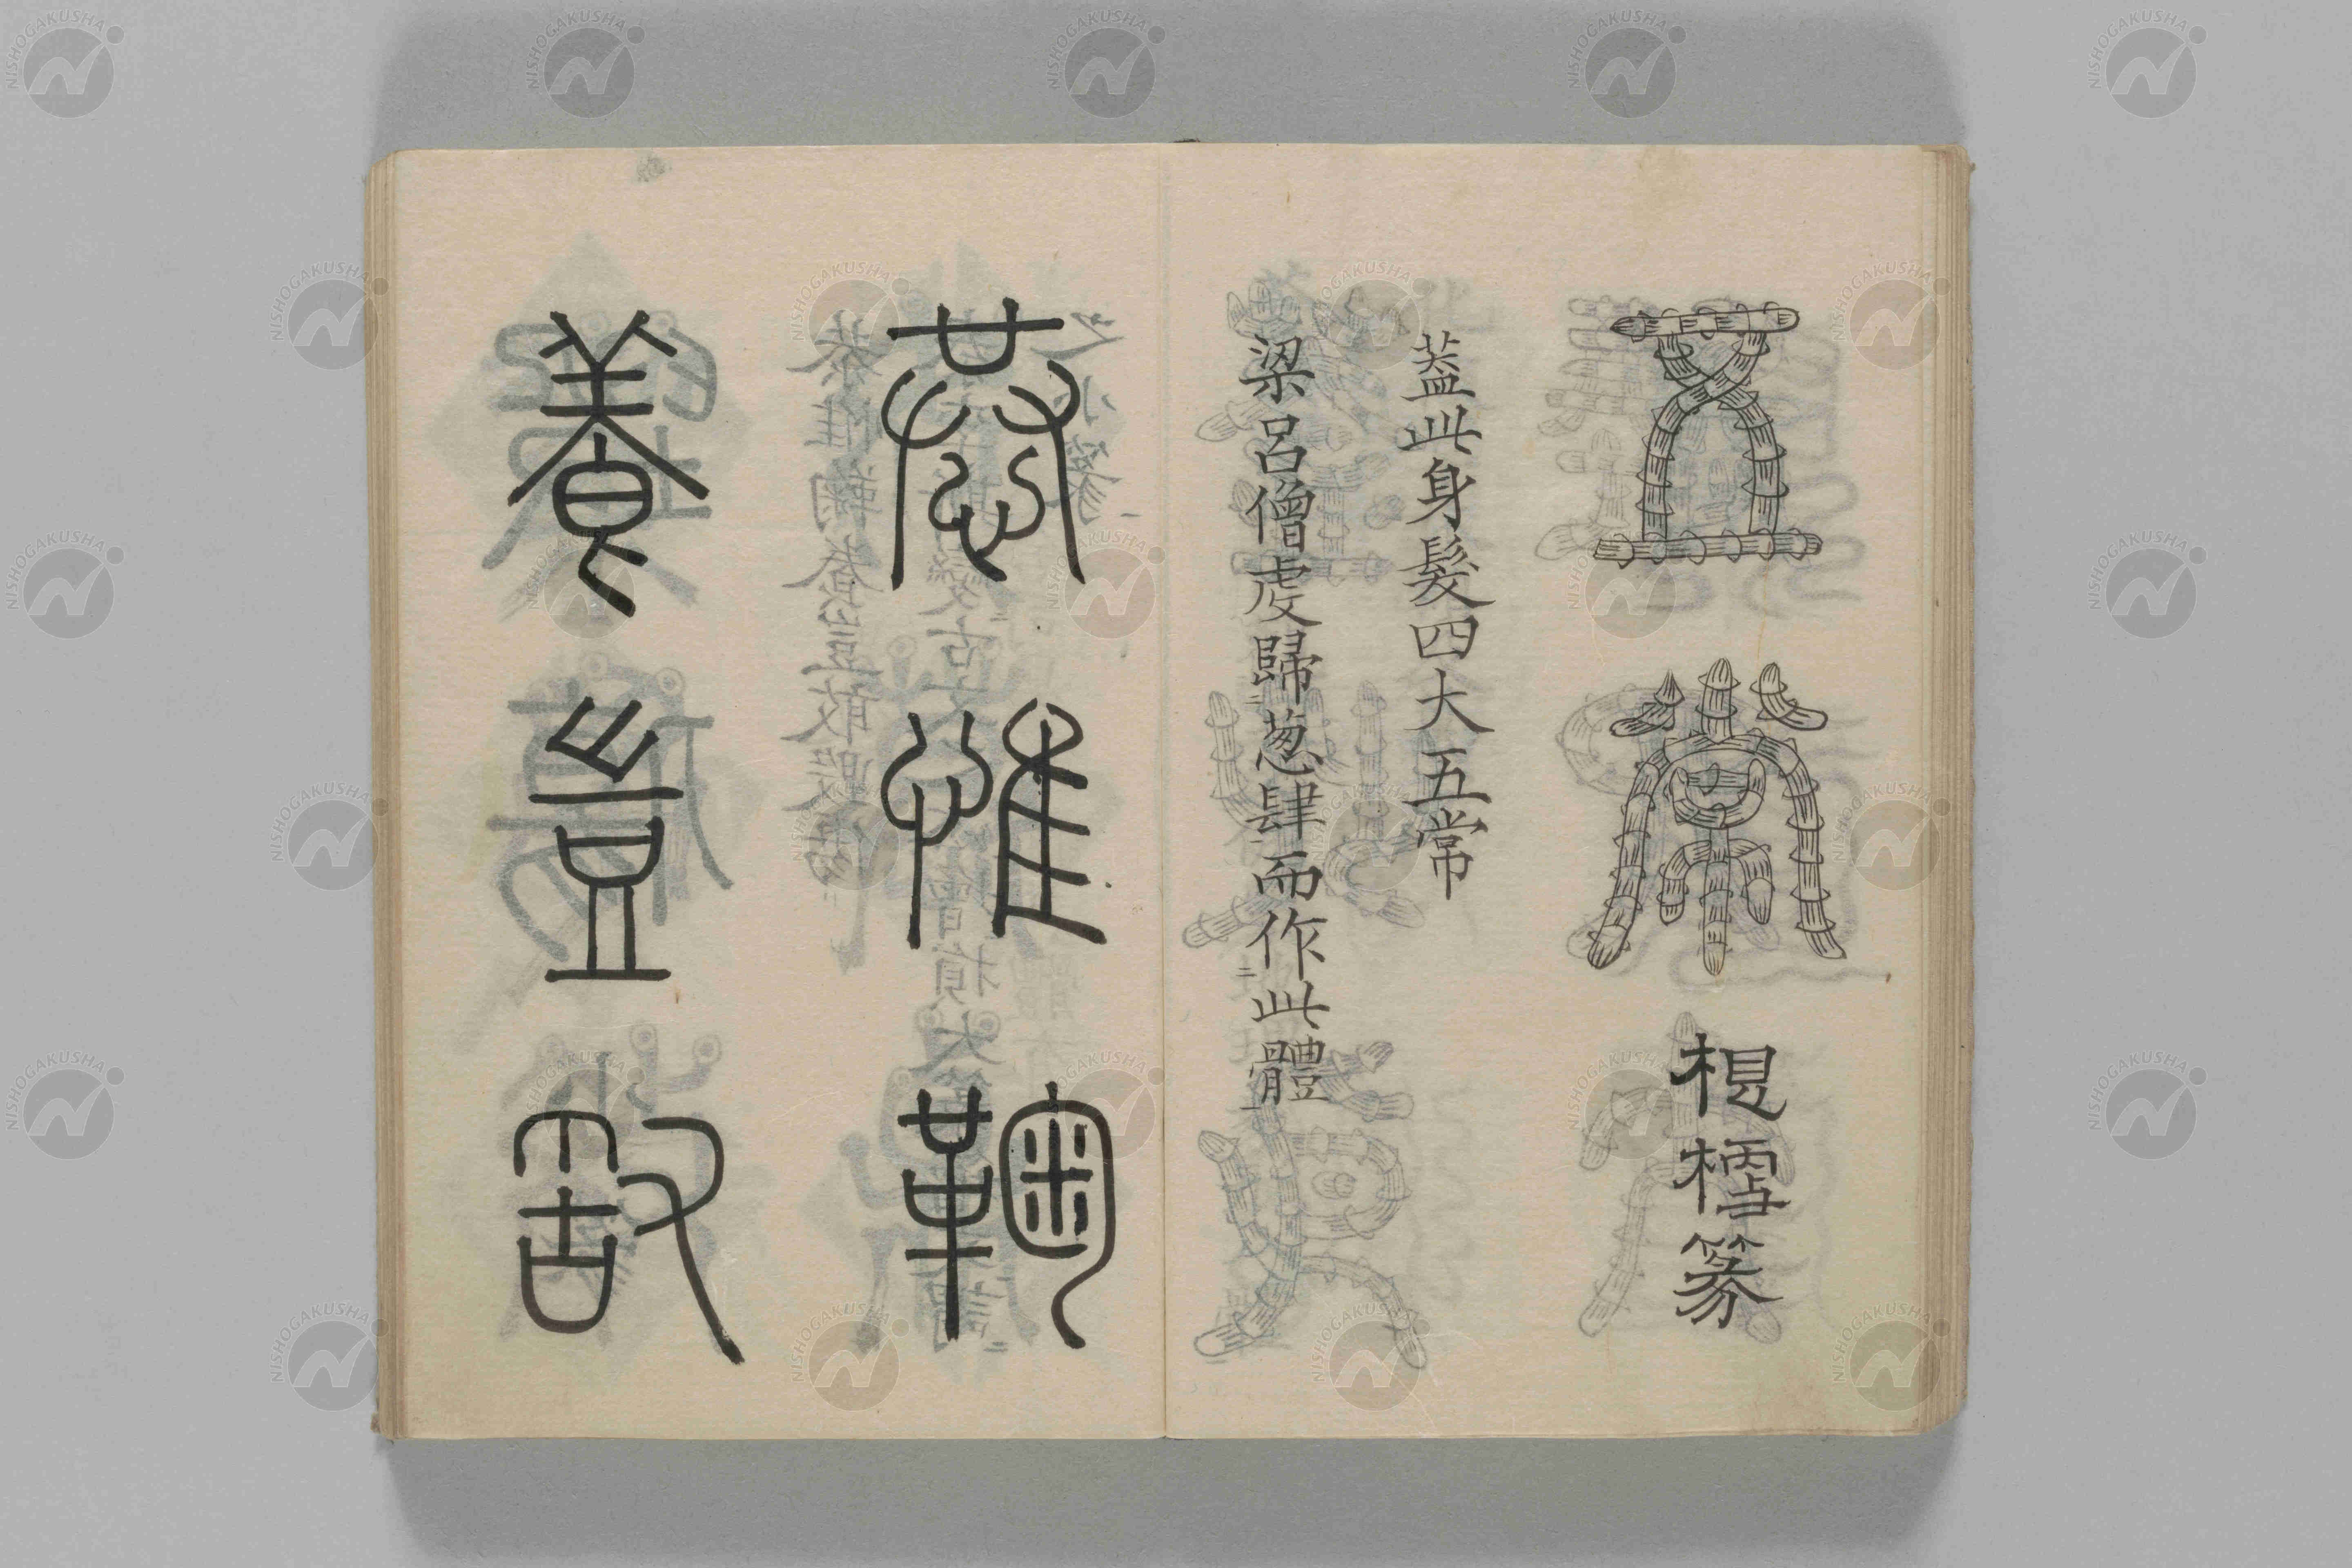 五常
篆
蓋此身髮四大五常
梁呂僧虔歸葱肆而作此體
恭惟鞠
養豈敢